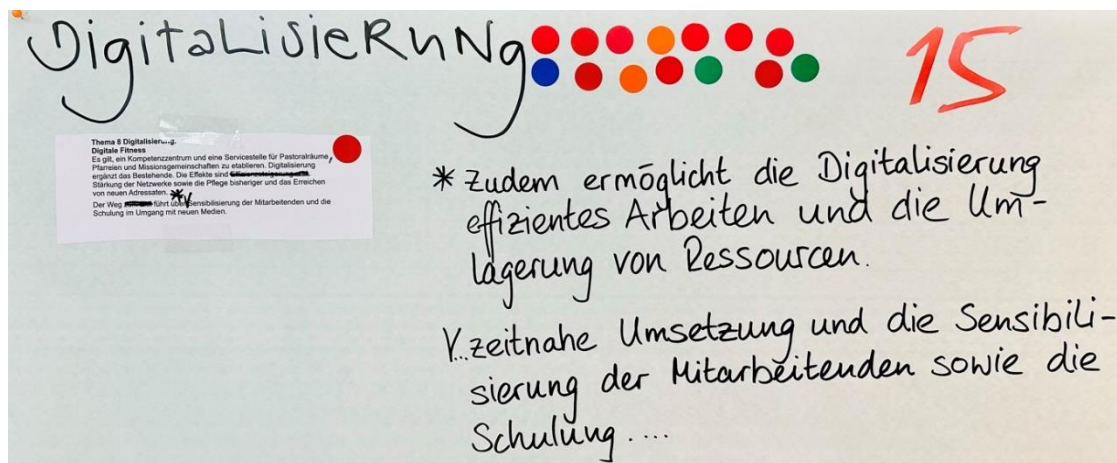 DigitaLisieRuNg
15
Thema 8 Digitalisierung.
Digitale Fitness
Es gilt, ein Kompetenzzentrum und eine Servicestelle für Pastoralräume,
Pfarreien und Missionsgemeinschaften zu etablieren. Digitalisierung
ergänzt das Bestehende. Die Effekte sind
Stärkung der Netzwerke sowie die Pflege bisheriger und das Erreichen
von neuen Adressaten. *
Der Weg führt über Sensibilisierung der Mitarbeitenden und die
Schulung im Umgang mit neuen Medien.
* Zudem ermöglicht die Digitalisierung
effizientes Arbeiten und die Um-
lagerung von Ressourcen.
V...zeitnahe Umsetzung und die Sensibili-
sierung der Mitarbeitenden sowie die
Schulung....